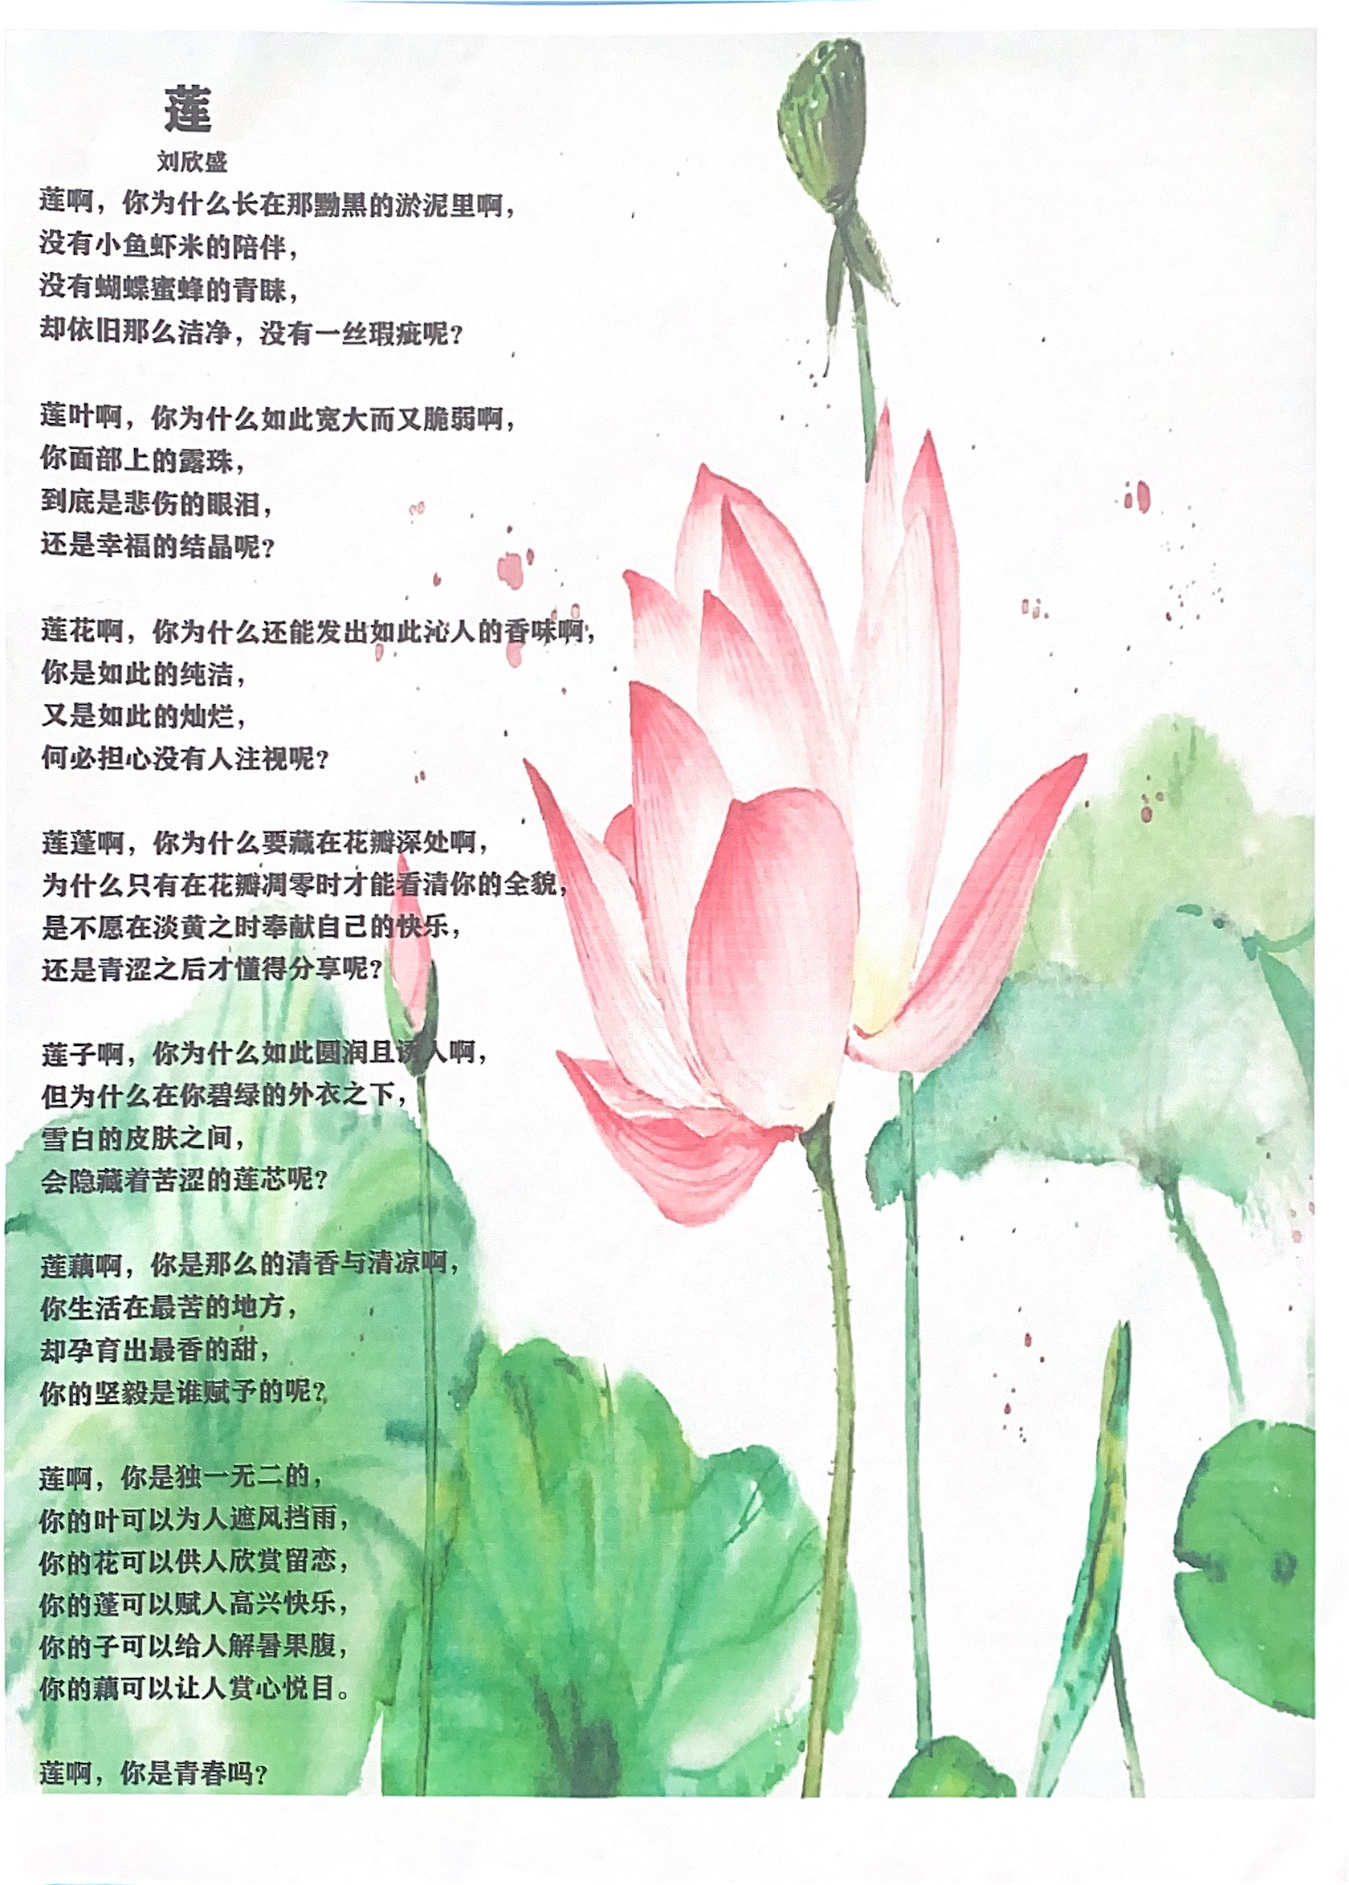 莲
刘欣盛
莲啊，你为什么长在那黝黑的淤泥里啊，
没有小鱼虾米的陪伴，
没有蝴蝶蜜蜂的青睐，
却依旧那么洁净，没有一丝瑕疵呢？
莲叶啊，你为什么如此宽大而又脆弱啊，
你面部上的露珠，
到底是悲伤的眼泪，
还是幸福的结晶呢？
莲花啊，你为什么还能发出如此沁人的香味啊，
你是如此的纯洁，
又是如此的灿烂，
何必担心没有人注视呢？
莲蓬啊，你为什么要藏在花瓣深处啊，
为什么只有在花瓣凋零时才能看清你的全貌，
是不愿在淡黄之时奉献自己的快乐，
还是青涩之后才懂得分享呢？
莲子啊，你为什么如此圆润且诱人啊，
但为什么在你碧绿的外衣之下，
雪白的皮肤之间，
会隐藏着苦涩的莲芯呢？
莲藕啊，你是那么的清香与清凉啊，
你生活在最苦的地方，
却孕育出最香的甜，
你的坚毅是谁赋予的呢？
莲啊，你是独一无二的，
你的叶可以为人遮风挡雨，
你的花可以供人欣赏留恋，
你的蓬可以赋人高兴快乐，
你的子可以给人解暑果腹，
你的藕可以让人赏心悦目。
莲啊，你是青春吗？